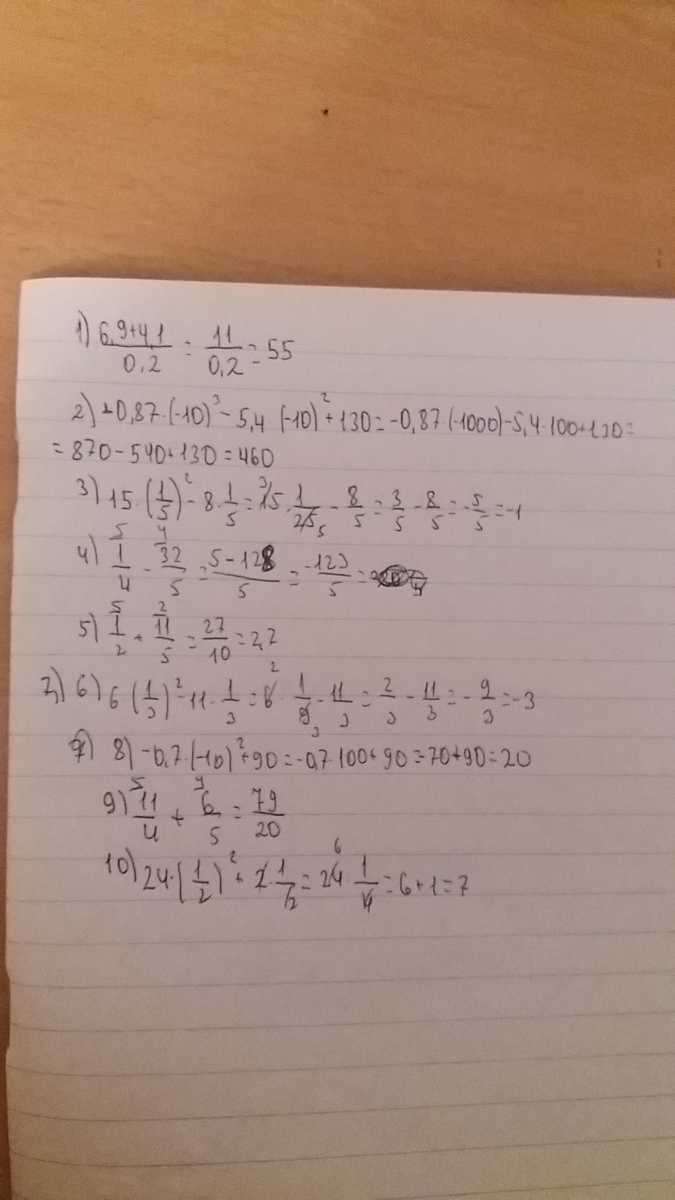 1) (6,9+4,1)/0,2 = 11/0,2 = 55
2) -0,87·(-10)³ - 5,4 (-10)² + 130 = -0,87·(-1000)-5,4·100+130=
= 870-540+130 = 460
3) 15·(1/5)² - 8·1/5 = 15·1/25 - 8/5 = 3/5 - 8/5 = -5/5 = -1
4) 1/4 - 32/5 = (5-128)/5 = -123/5 =
5) 1/2 + 11/5 = 27/10 = 2,7
7) 6) 6(1/3)² - 11·1/3 = 6·1/9 - 11/3 = 2/3 - 11/3 = -9/3 = -3
8) -0,7·(-10)²+90 = -0,7·100+90 = 70+90 = 20
9) 11/4 + 6/5 = 79/20
10) 24·(1/2)² + 2·1/2 = 24·1/4 = 6+1 = 7